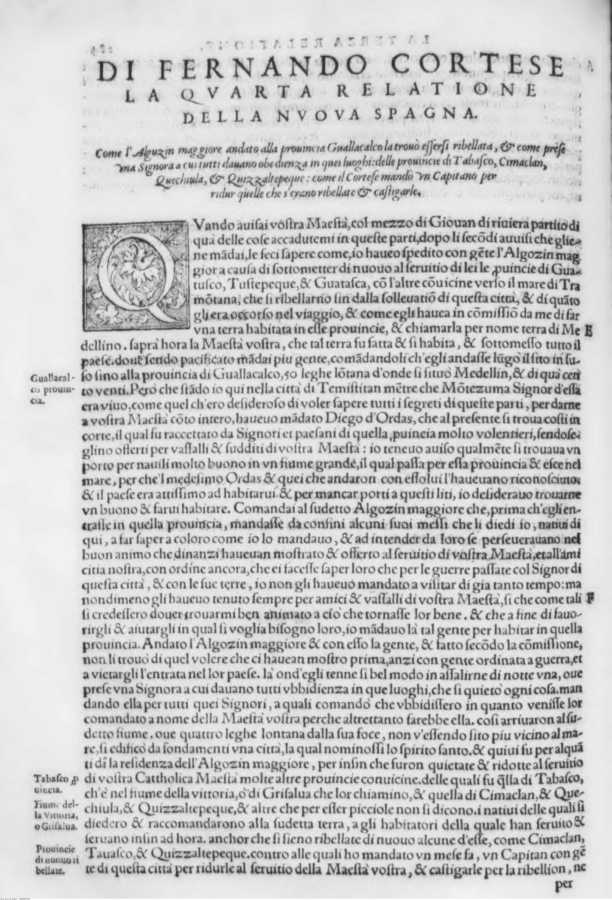 DI FERNANDO CORTESE
LA QVARTA RELATIONE
DELLA NVOVA SPAGNA.
Come l'Alguzin maggiore andato alla prouincia Guallacalco la trouò essersi ribellata, & come prese
vna Signora a cui tutti dauano obedienza in quei luoghi: delle prouincie di Tabasco, Cimaclan,
Quechiula, & Quizzaltepeque: come il Cortese mandò vn Capitano per
ridur quelle che s'erano ribellate & castigarle.
QVando auisai vostra Maestà, col mezzo di Giouan di riuiera partito di
qua delle cose accadutemi in queste parti, dopo li secōdi auuisi che glie-
ne mādai, le feci sapere come, io haueo spedito con gēte l'Algozin mag
gior a causa di sottometter di nuouo al seruitio di lei le ꝓuincie di Gua-
tusco, Tustepeque, & Guatasca, cō l'altre cōuicine verso il mare di Tra
mōtana, che si ribellarno sin dalla solleuatiō di questa città, & di quāto
gli era occorso nel viaggio, & come egli hauea in cōmissiō da me di far
vna terra habitata in esse prouincie, & chiamarla per nome terra di Me E
dellino. saprà hora la Maestà vostra, che tal terra fu fatta & si habita, & sottomesso tutto il
paese. doue sendo pacificato mādai piu gente, comādandoli ch'egli andasse lūgo il sito in su-
so sino alla prouincia di Guallacalco, 50 leghe lōtana d'onde si situò Medellin, & di qua cen
Guallacal-
co prouin-
cia.
to venti. Però che stādo io qui nella città di Temistitan mētre che Mōtezuma Signor d'essa
era viuo, come quel ch'ero desideroso di voler sapere tutti i segreti di queste parti, per darne
a vostra Maestà cōto intero, haueuo mādato Diego d'Ordas, che al presente si troua costi in
corte, il qual fu raccettato da Signori et paesani di quella ꝓuincia molto volentieri, sendose-
glino offerti per vassalli & sudditi di vostra Maestà: io teneuo auiso qualmēte si trouaua vn
porto per nauili molto buono in vn fiume grande, il qual passa per essa prouincia & esce nel
mare, per che'l medesimo Ordas & quei che andaron con essolui l'haueuano riconosciuto,
& il paese era attissimo ad habitarui. & per mancar porti a questi liti, io desiderauo trouarne
vn buono & farui habitare. Comandai al sudetto Algozin maggiore che, prima ch'egli en-
trasse in quella prouincia, mandasse da confini alcuni suoi messi che li diedi io, natiui di
qui, a far saper a coloro come io lo mandauo, & ad intender da loro se perseuerauano nel
buon animo che dinanzi haueuan mostrato & offerto al seruitio di vostra Maestà, et all'ami
citia nostra, con ordine ancora, che ei facesse saper loro che per le guerre passate col Signor di
questa città, & con le sue terre, io non gli haueuo mandato a visitar di gia tanto tempo: ma
nondimeno gli haueuo tenuto sempre per amici & vassalli di vostra Maestà, si che come tali F
si credessero douer trouarmi ben animato a ciò che tornasse lor bene. & che a fine di fauo-
rirgli & aiutargli in qual si voglia bisogno loro, io mādauo là tal gente per habitar in quella
prouincia. Andato l'Algozin maggiore & con esso la gente, & fatto secōdo la cōmissione,
non li trouò di quel volere che ci hauean mostro prima, anzi con gente ordinata a guerra, et
a vietargli l'entrata nel lor paese. là ond'egli tenne si bel modo in assalirne di notte vna, oue
prese vna Signora a cui dauano tutti vbbidienza in que luoghi, che si quietò ogni cosa. man
dando ella per tutti quei Signori, a quali comandò che vbbidissero in quanto venisse lor
comandato a nome della Maestà vostra perche altrettanto farebbe ella. così arriuaron al su-
detto fiume. oue quattro leghe lontana dalla sua foce, non v'essendo sito piu vicino al ma-
re, si edificò da fondamenti vna città, la qual nominossi lo spirito santo. & quiui fu per alquā
ti dì la residenza dell'Algozin maggiore, per insin che furon quietate & ridotte al seruitio
Tabasco ꝓ
uincia.
di vostra Cattholica Maestà molte altre prouincie conuicine. delle quali fu q̄lla di Tabasco,
Fiume del-
la Vittoria,
o Grisalua.
ch'è nel fiume della vittoria, ò di Grisalua che lor chiamino, & quella di Cimaclan, & Que-
chiula, & Quizzaltepeque, & altre che per esser picciole non si dicono. i natiui delle quali si
diedero & raccomandarono alla sudetta terra, a gli habitatori della quale han seruito &
seruano insin ad hora. anchor che si sieno ribellate di nuouo alcune d'esse, come Cimaclan,
Prouincie
di nuouo ri
bellate.
Tauasco, & Quizzaltepeque. contro alle quali ho mandato vn mese fa, vn Capitan con gē
te di questa città per ridurle al seruitio della Maestà vostra, & castigarle per la ribellion, ne
per